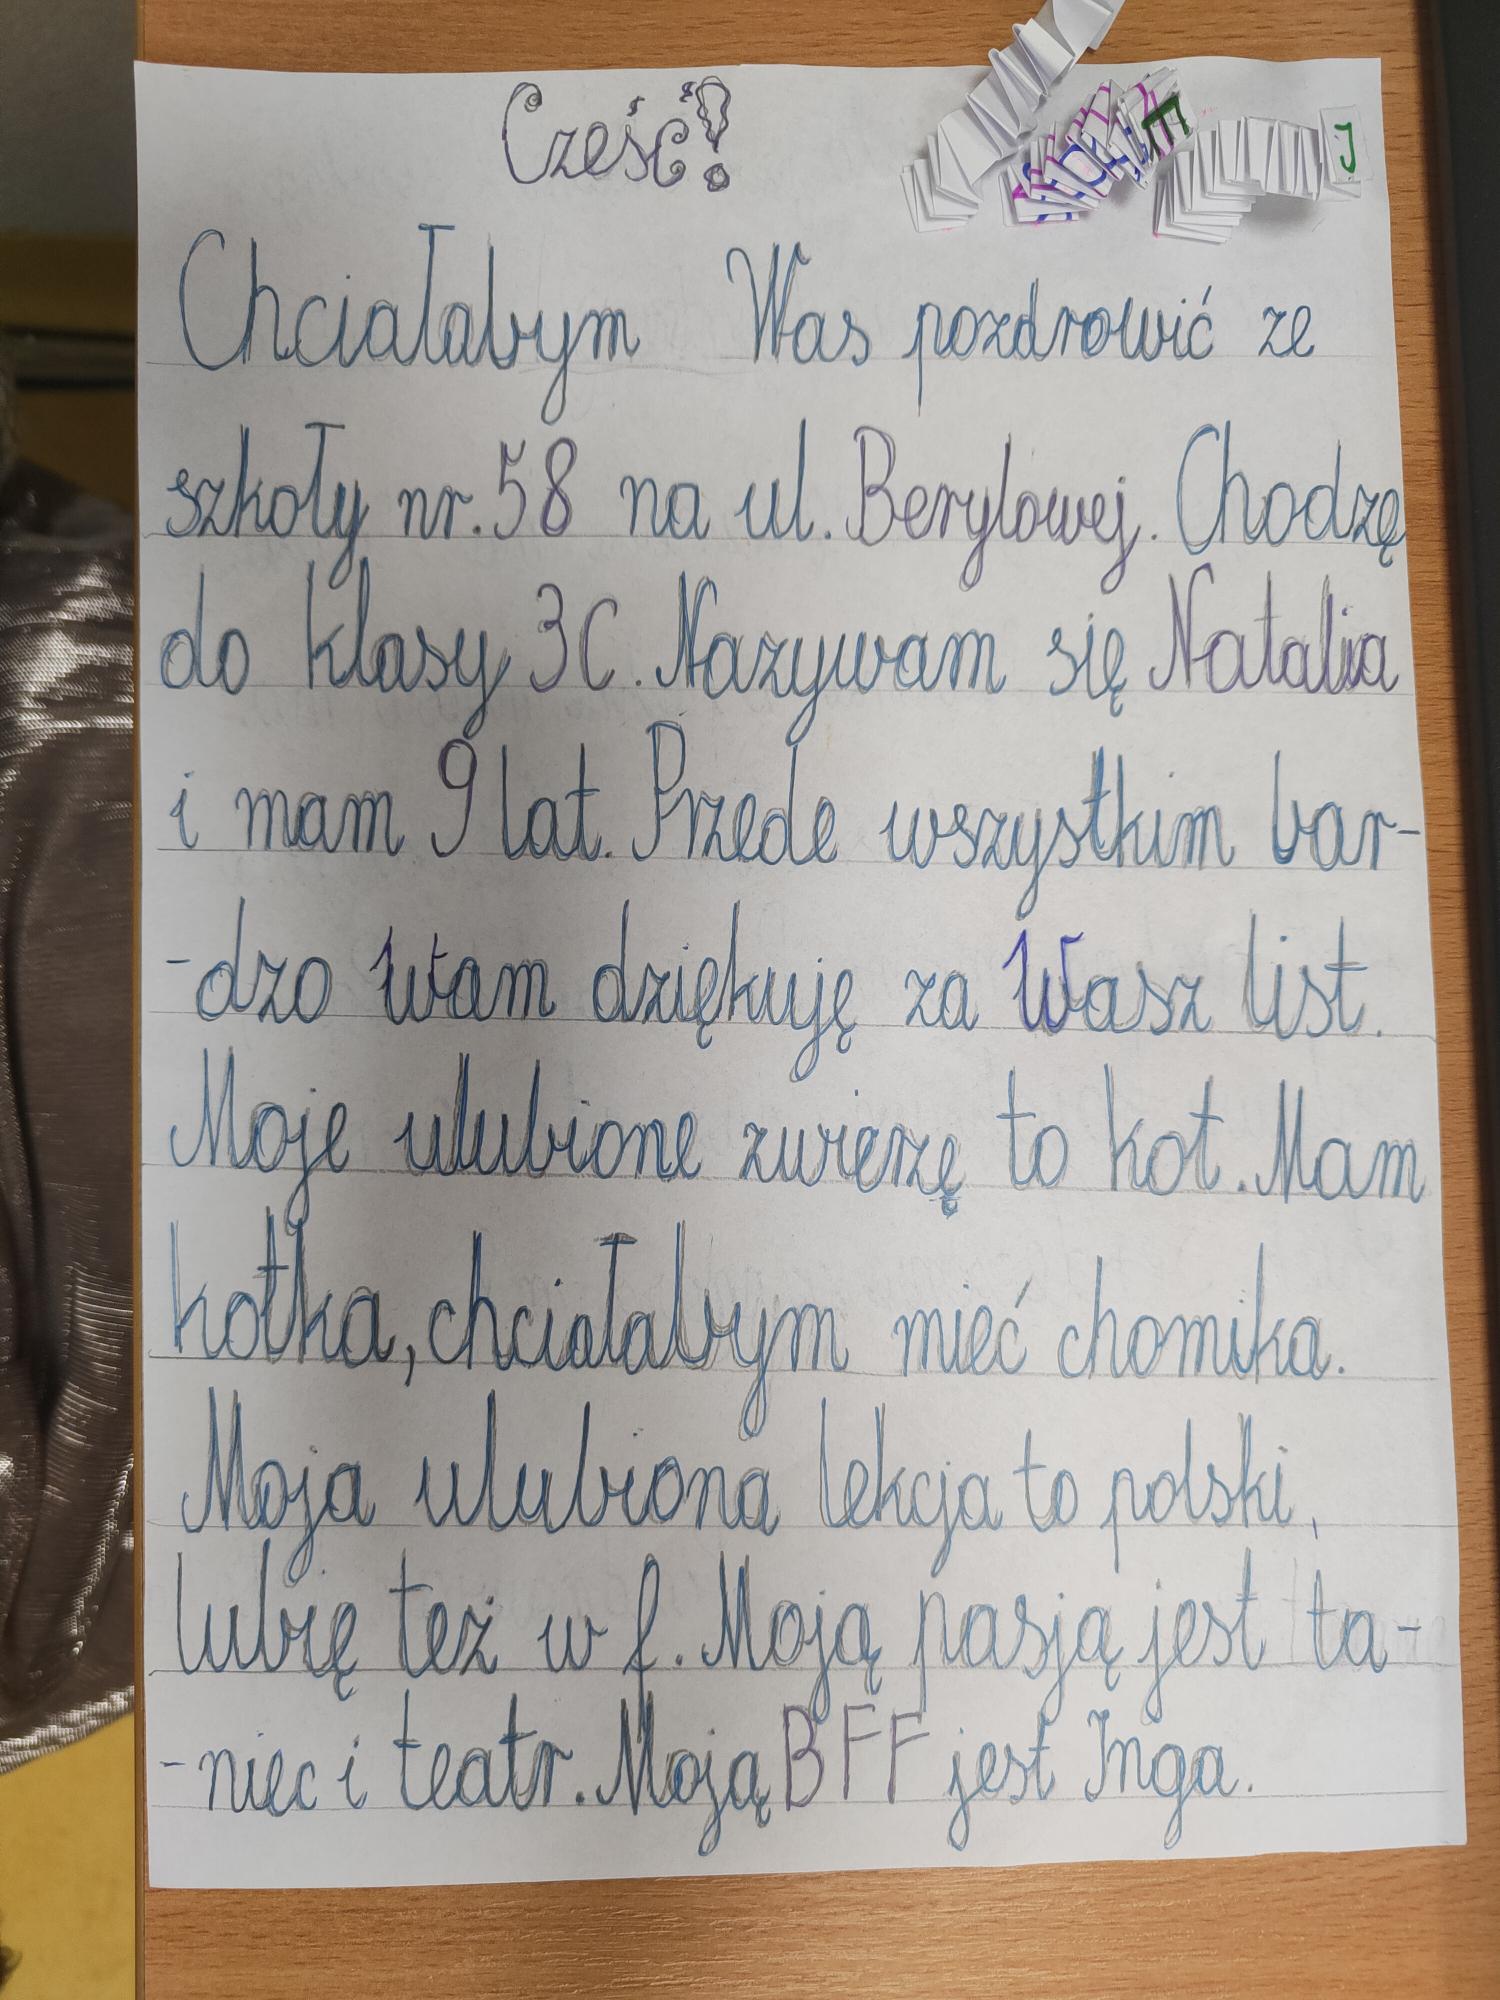 Cześć!
Chciałabym Was pozdrowić ze
szkoły nr. 58 na ul. Berylowej. Chodzę
do klasy 3C. Nazywam się Natalia
i mam 9 lat. Przede wszystkim bar-
-dzo Wam dziękuję za Wasz list.
Moje ulubione zwierzę to kot. Mam
kotka, chciałabym mieć chomika.
Moja ulubiona lekcja to polski,
lubię też w f. Moją pasją jest ta-
-niec i teatr. Moją BFF jest Inga.